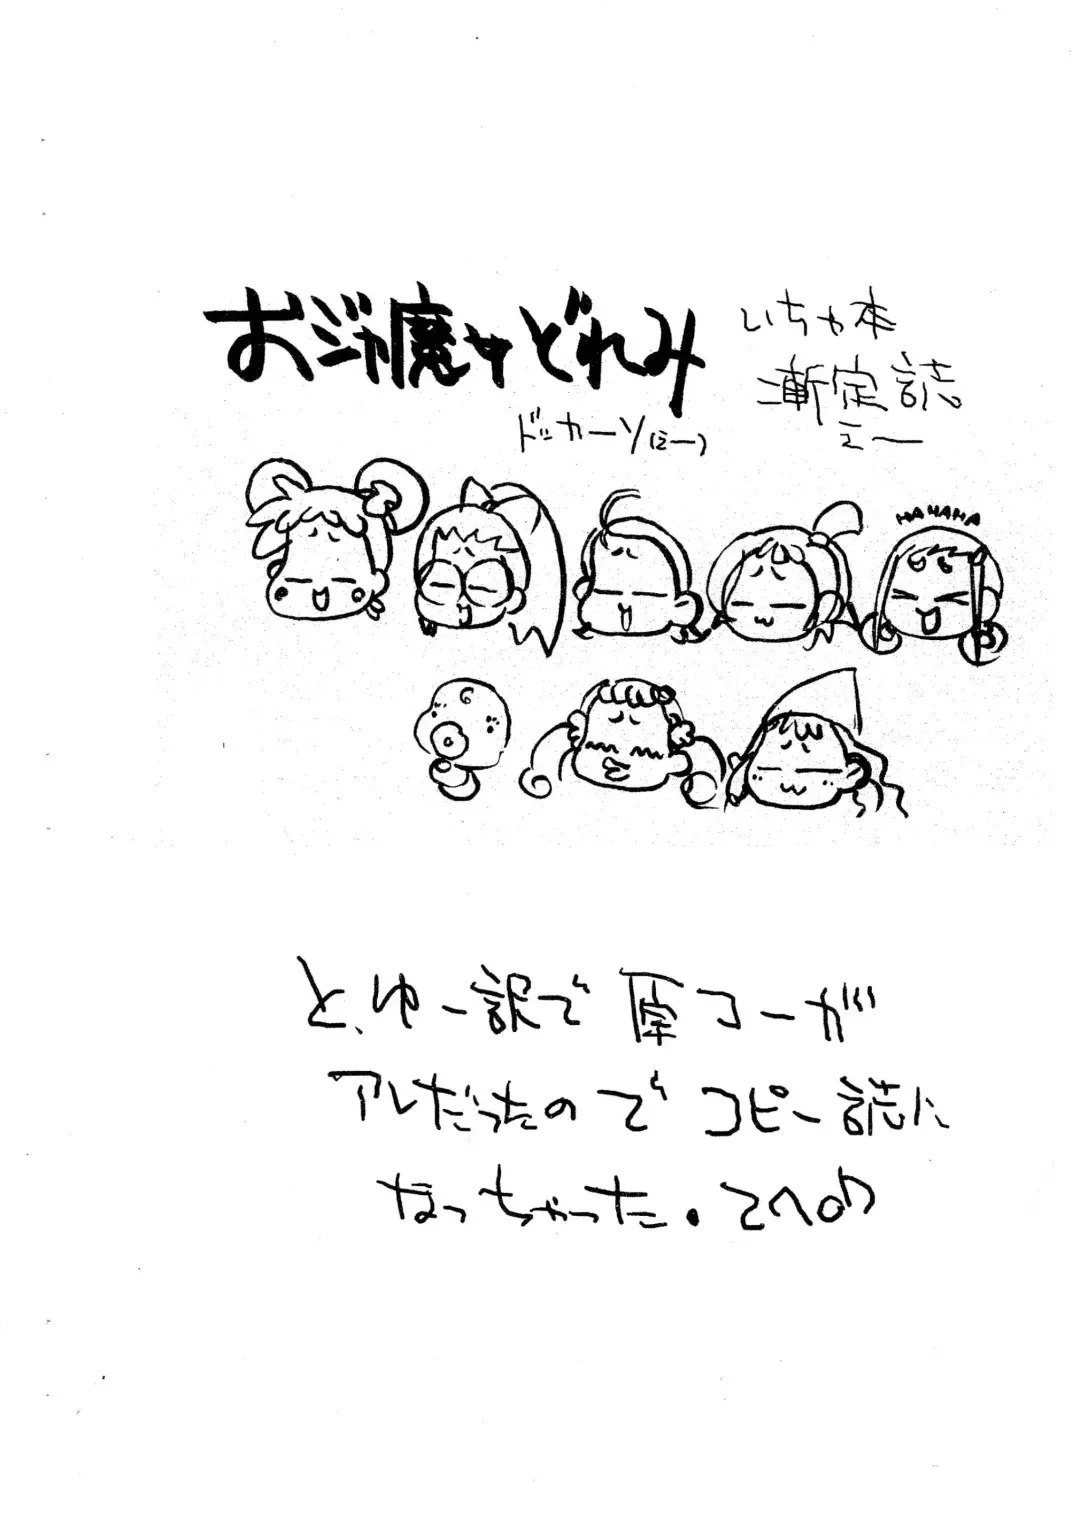 おジャ魔女どれみ
ドッカーン(えー)
いちゃ本
漸定誌。
えー
HAHAHA
と、ゆー訳で原コーが
アレだったのでコピー誌に
なっちゃった。てへ♪